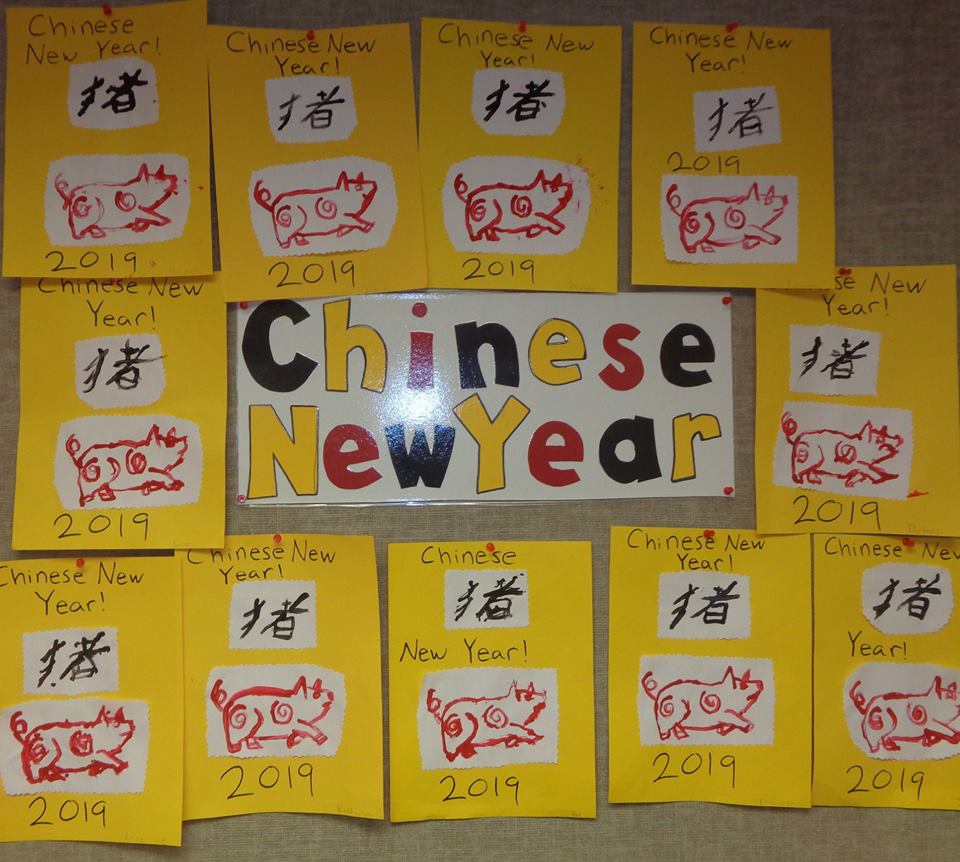 Chinese
New Year!
猪
2019
Chinese New
Year!
猪
2019
Chinese New
Year!
猪
2019
Chinese New
Year!
猪
2019
Chinese New
Year!
猪
2019
Chinese
New Year
New
Year!
猪
2019
Chinese New
Year!
猪
2019
Chinese New
Year!
猪
2019
Chinese
猪
New Year!
2019
Chinese New
Year!
猪
2019
Chinese New
猪
Year!
2019